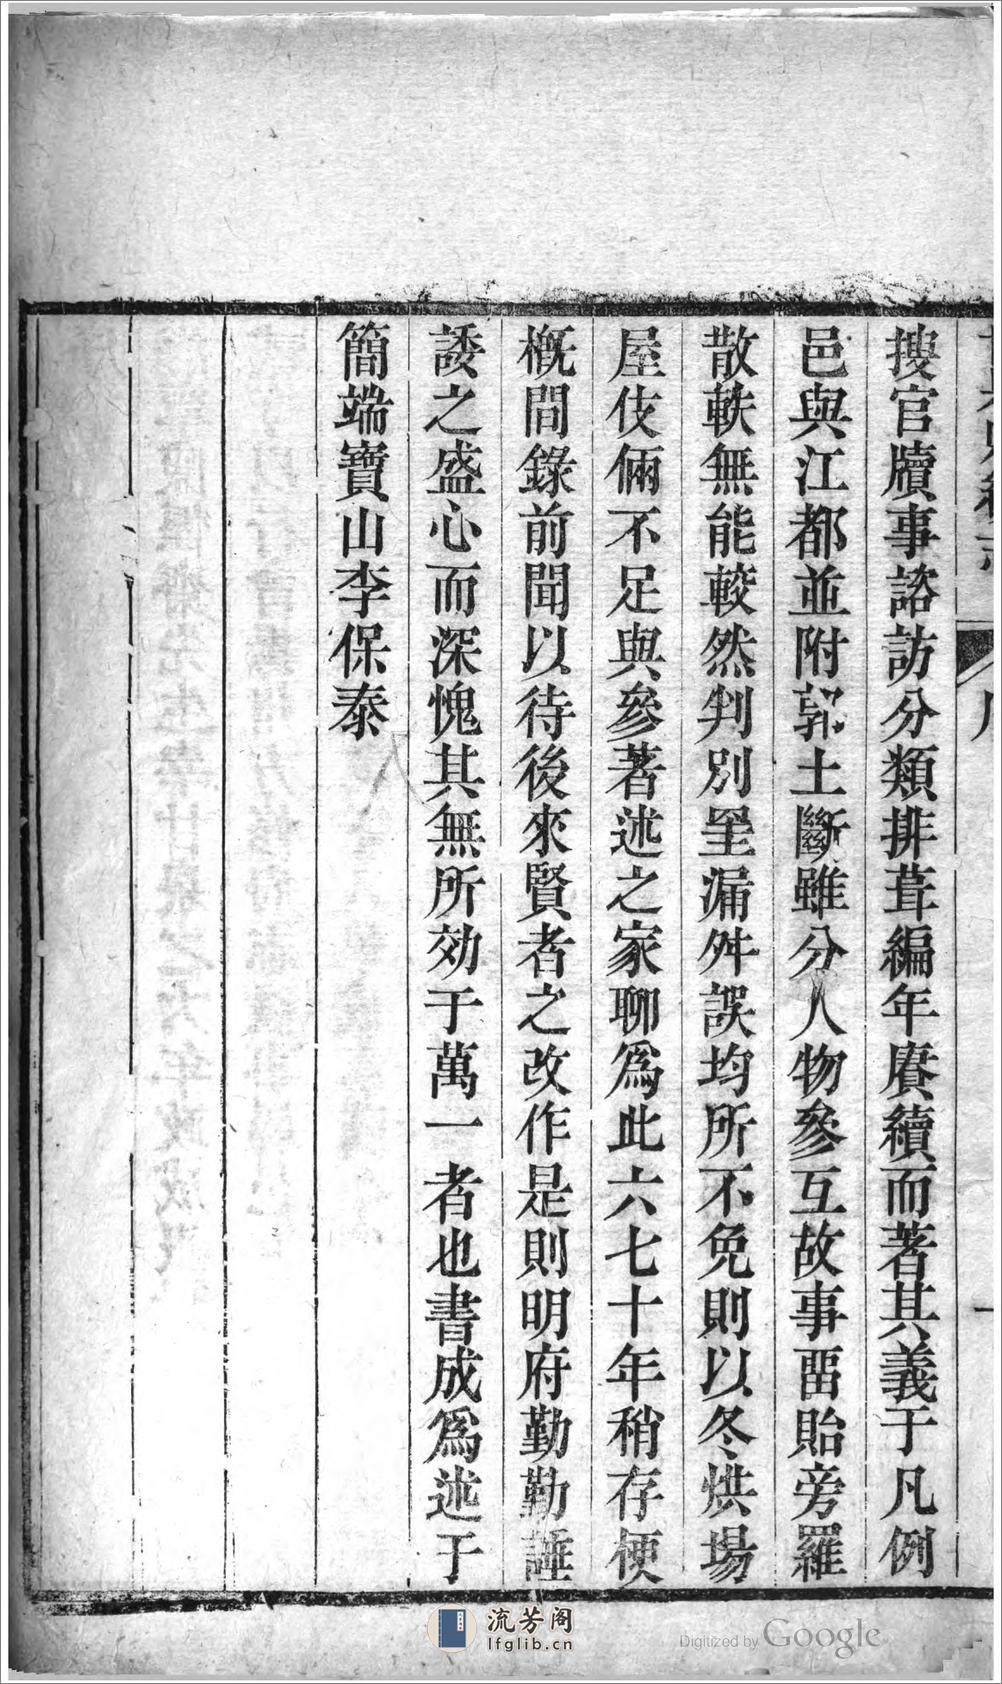 搜官牘事諮訪分類排葺編年賡續而著其義于凡例
邑與江都並附郭土斷雖分人物參互故事畱貽旁羅
散軼無能較然判別罣漏舛誤均所不免則以冬烘場
屋伎倆不足與參著述之家聊爲此六七十年稍存梗
槪間錄前聞以待後來賢者之改作是則明府勤勤諈
諉之盛心而深愧其無所効于萬一者也書成爲述于
簡端寶山李保泰
流芳阁
lfglib.cn
Digitized by Google